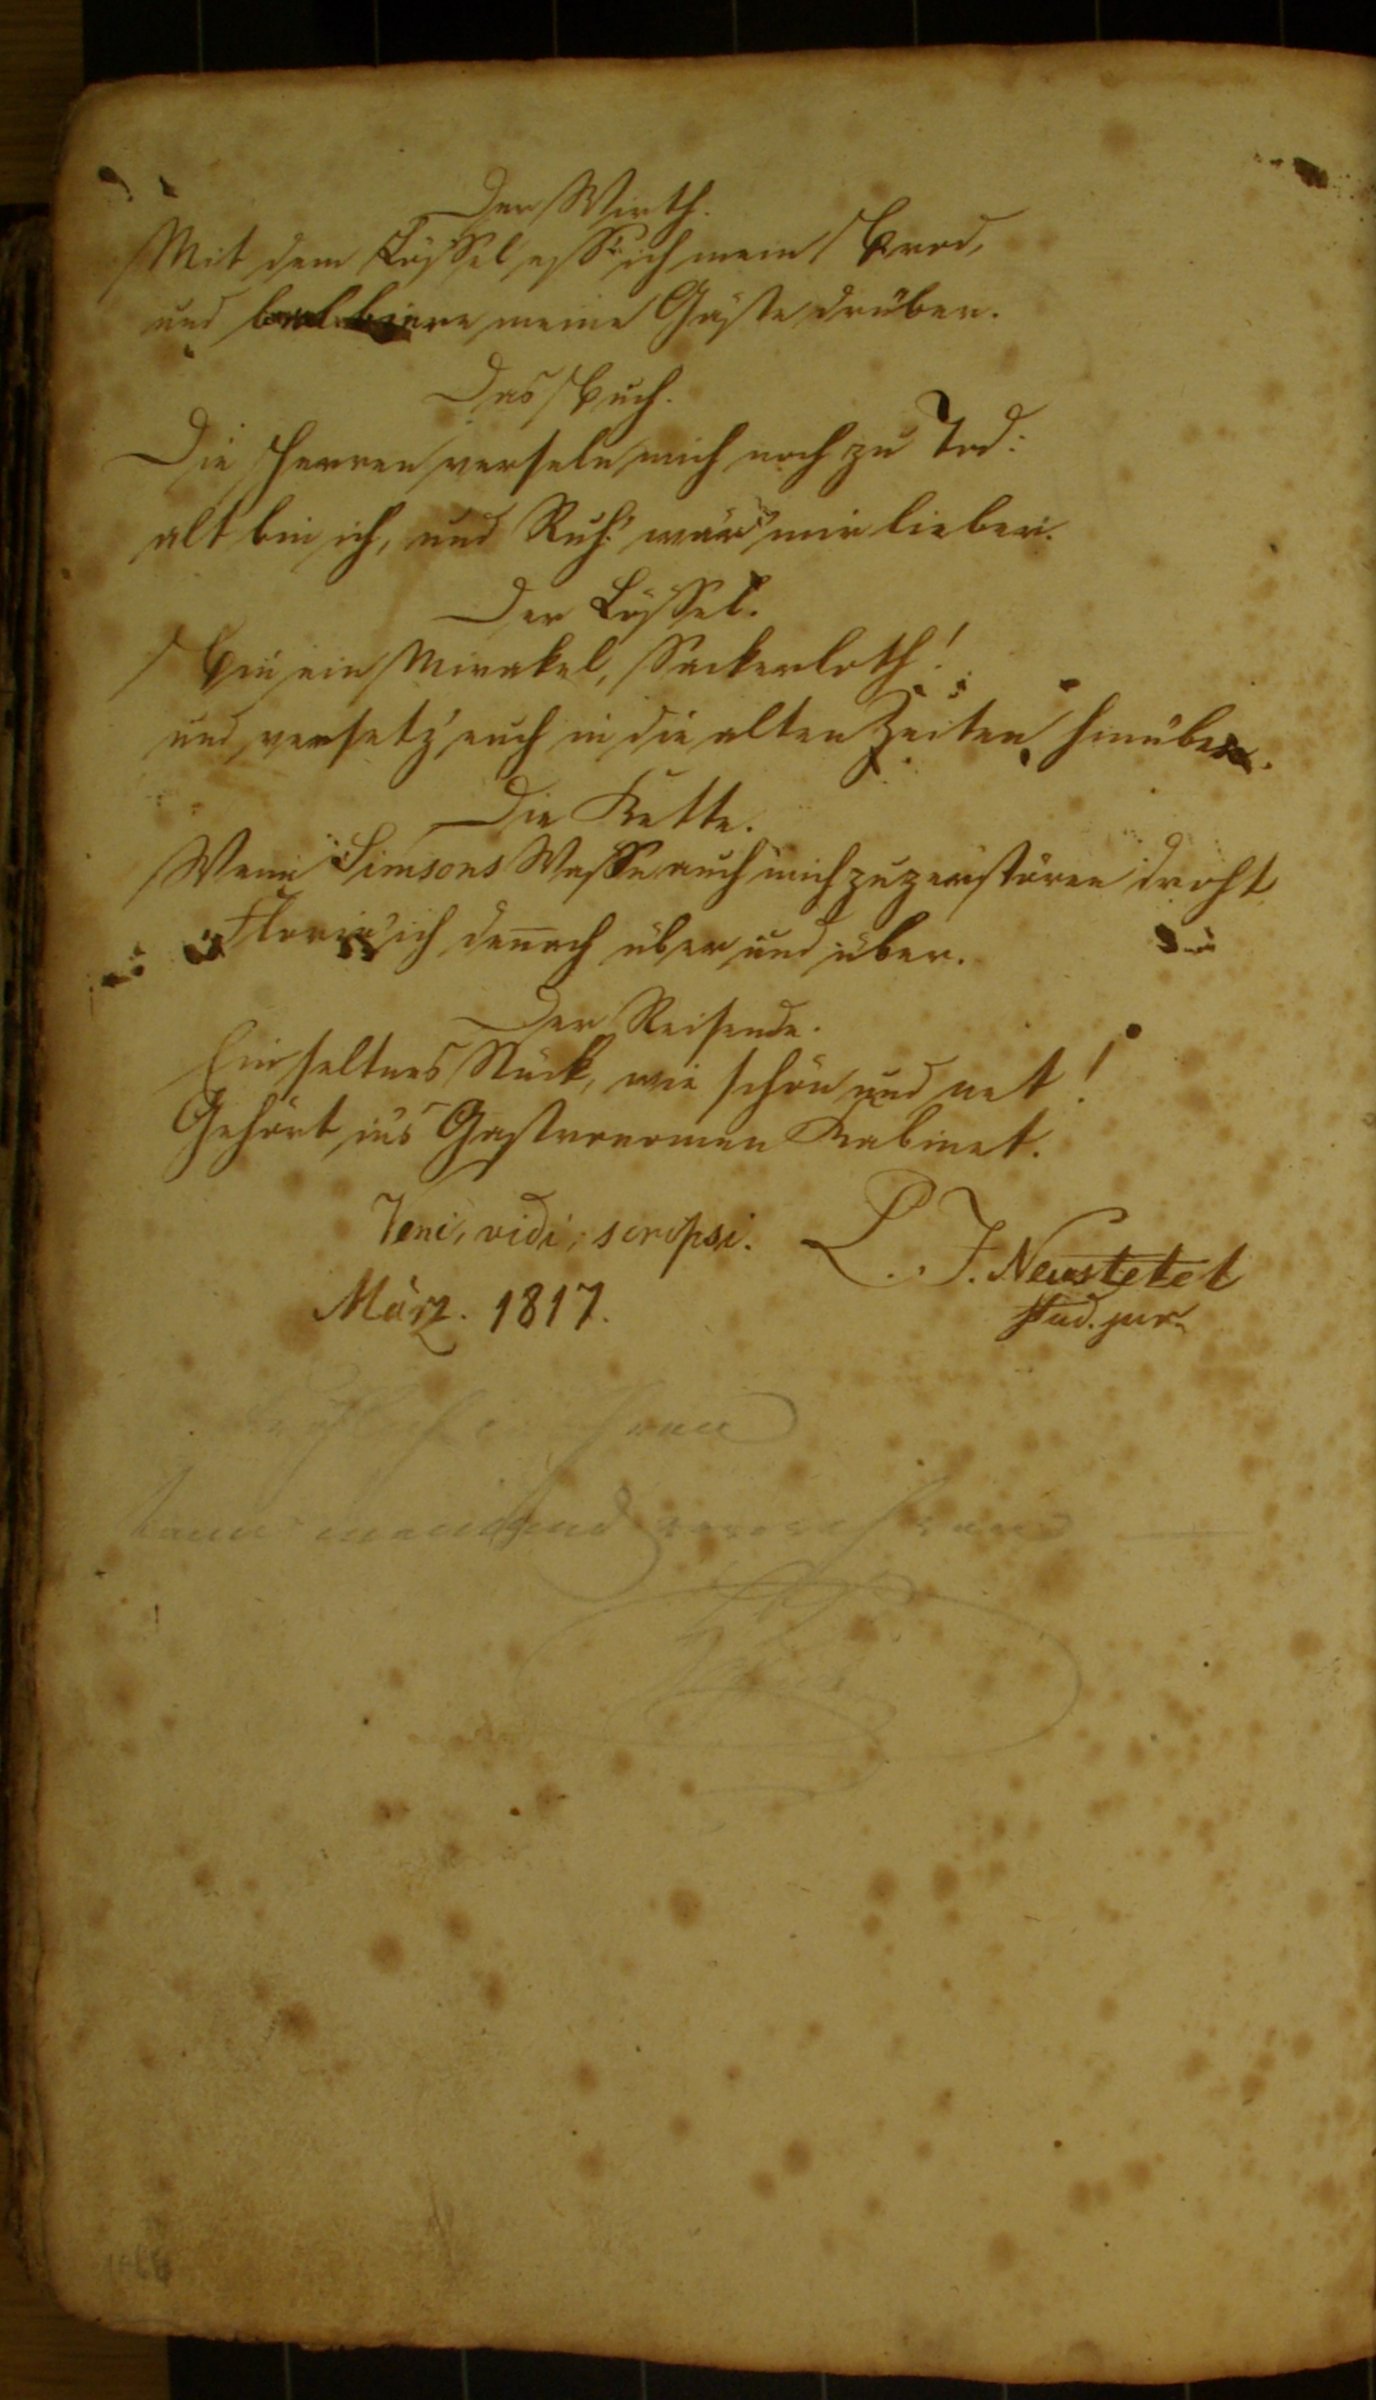 Der Wirth.
Mit dem Löffel ess' ich mein Brod,
und balbiere meine Gäste drüber.
Das Buch.
Die Herren verseln mich noch zu Tod:
alt bin ich, und Ruh' wär' mir lieber.
Der Löffel.
Bin ein Mirakel, Sackerloth!
und versetz' euch in die alten Zeiten hinüber.
Die Kette.
Wenn Simsons Waffe auch mich zu zerstören droht
Florir' ich dennoch über und über.
Der Reisende.
Ein seltnes Stück, wie schön und net!
Gehört ins Gastronomen Kabinet.
Veni, vidi, scripsi.
L. J. Neustetel
März. 1817.
stud. jur.